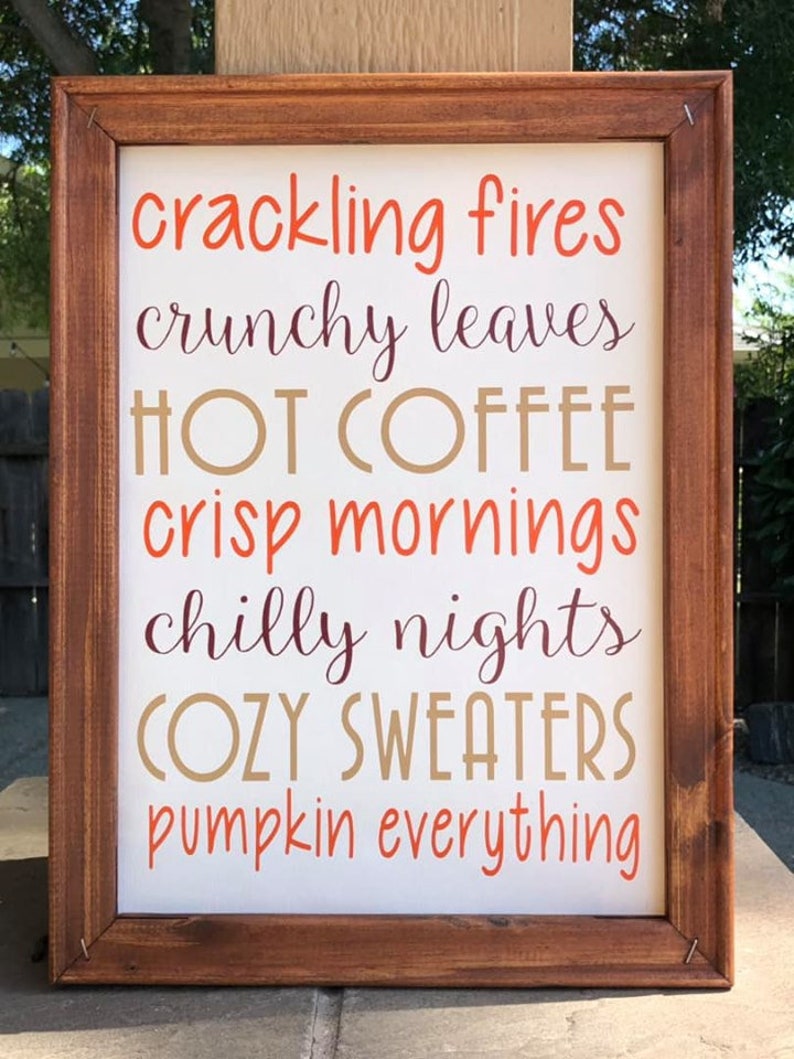 crackling fires
crunchy leaves
HOT COFFEE
crisp mornings
chilly nights
COZY SWEATERS
pumpkin everything